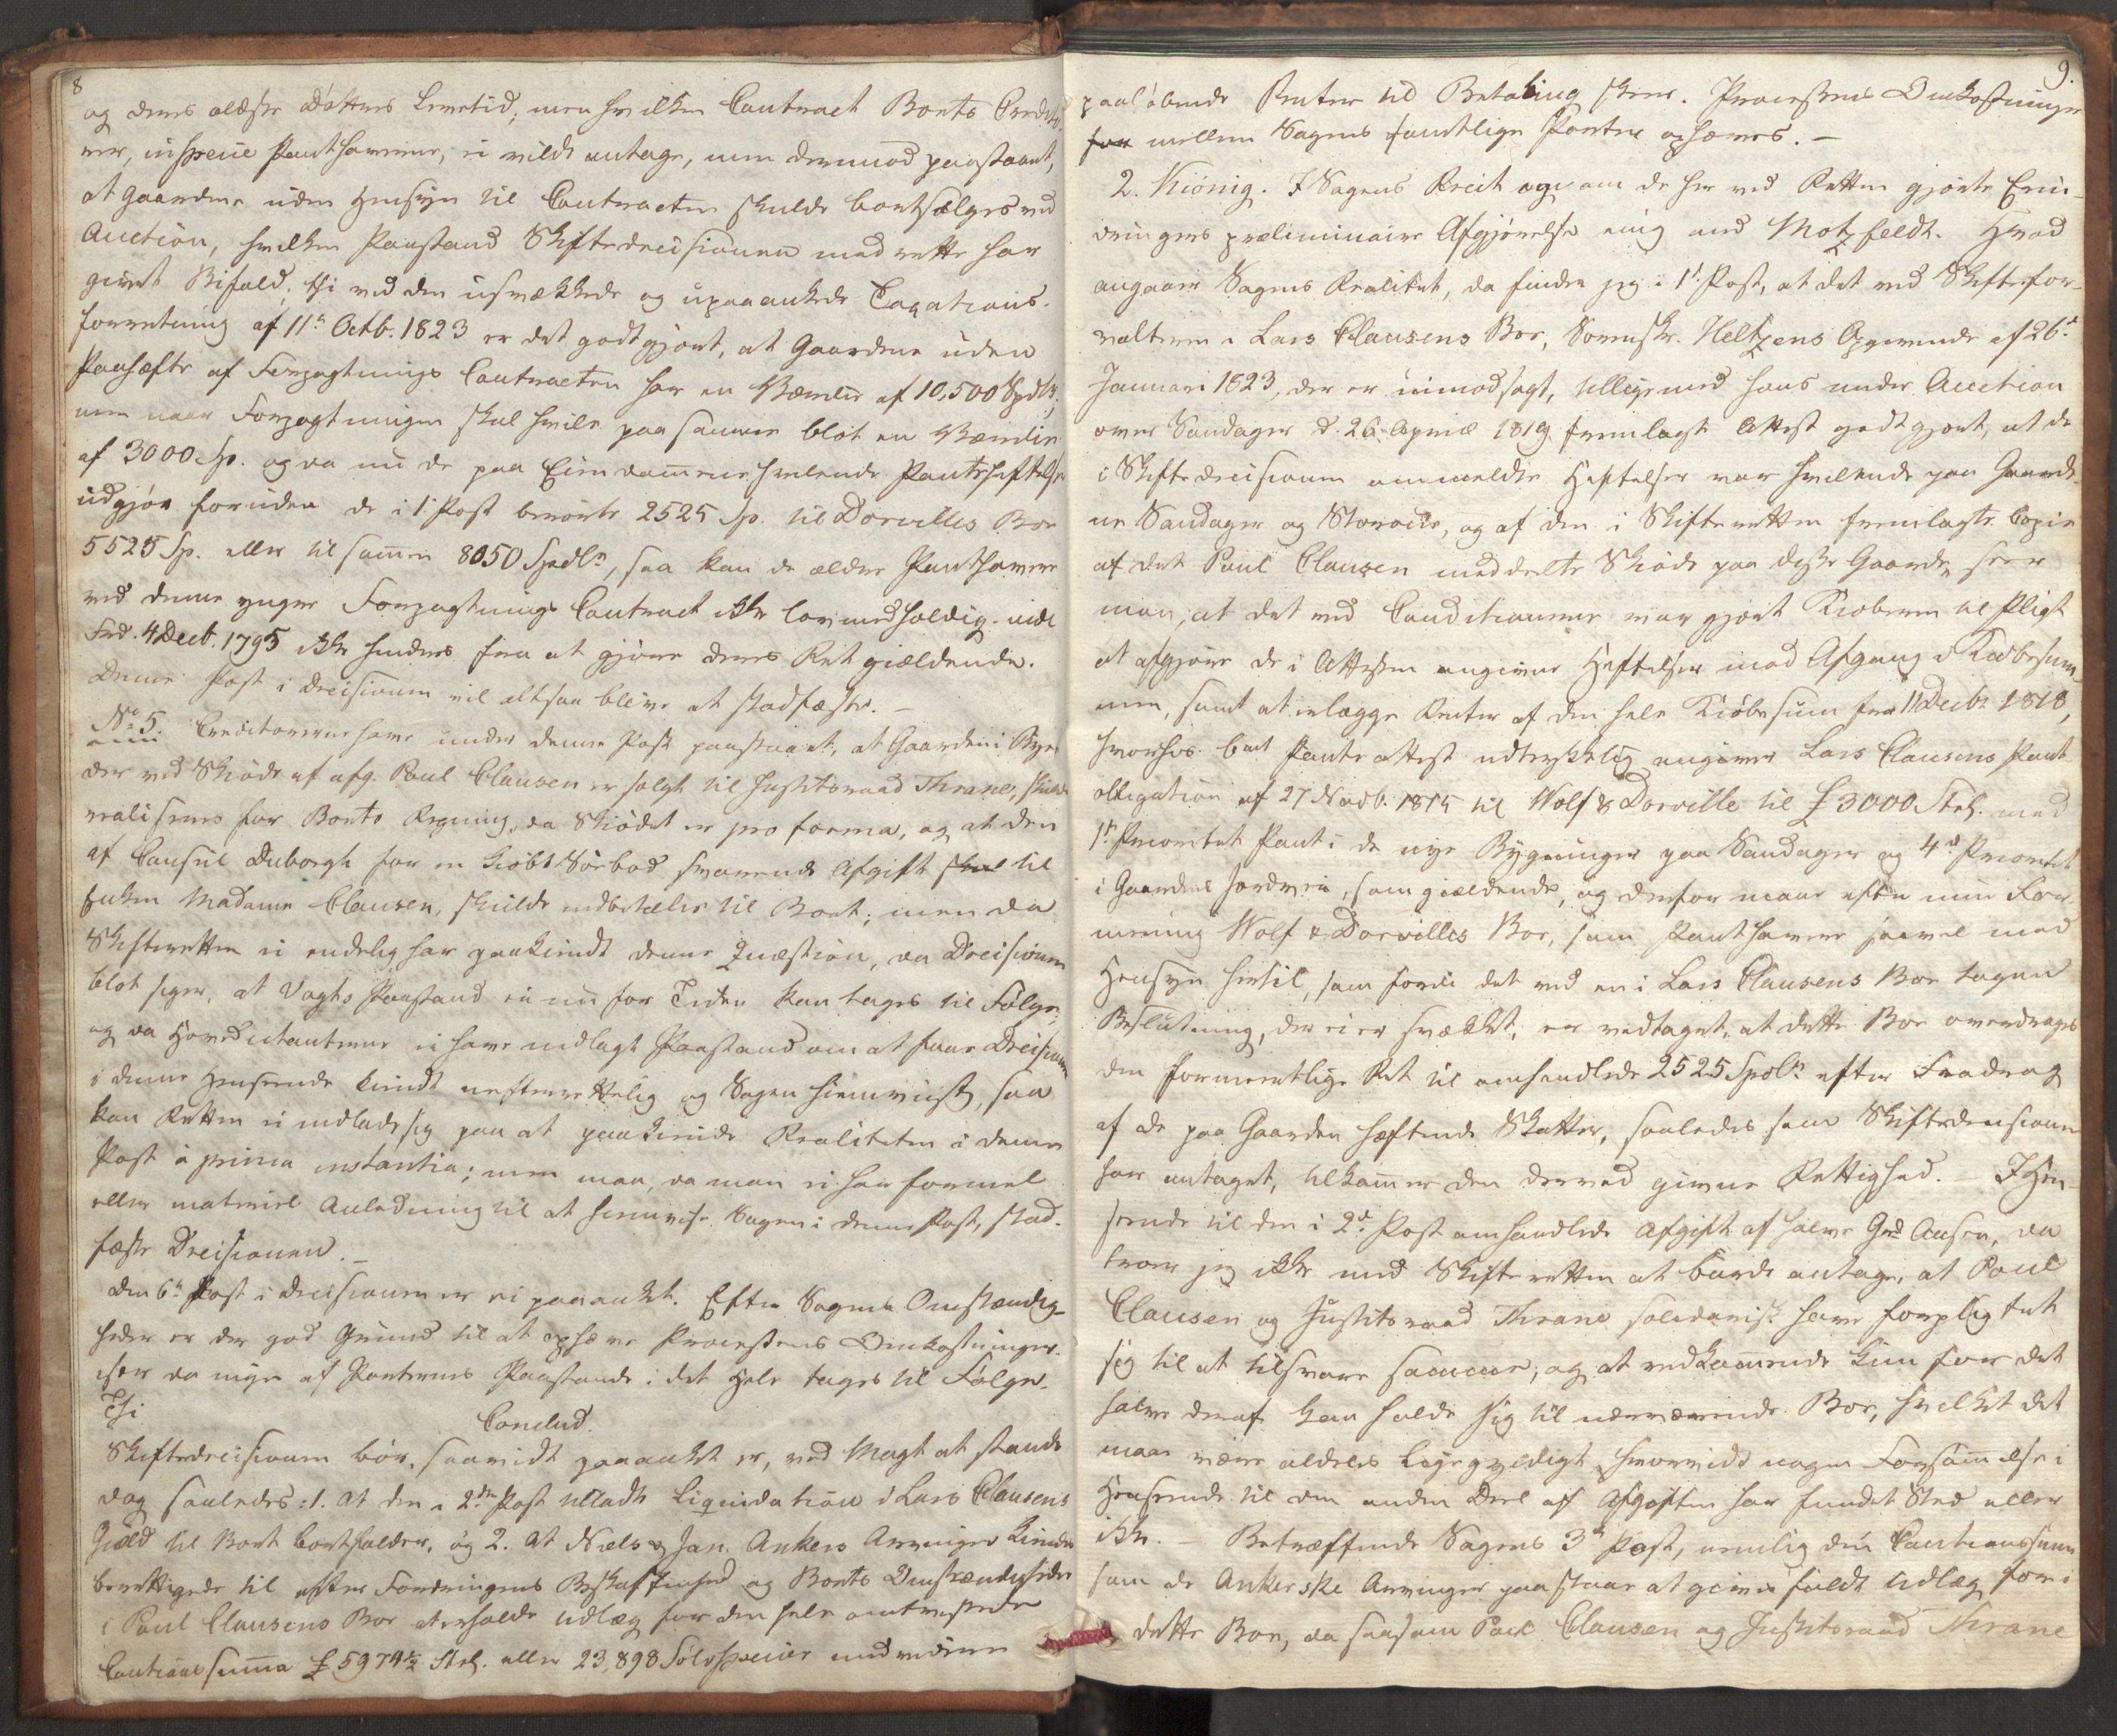 8
og deres ældste Datters Levetid; men hvilken Contract Boets Credito-
rer, in specie Panthaverne, ei vilde antage, men derimod paastaaet,
at Gaardene uden Hensyn til Contracten skulde bortsælges ved
Auction, hvilken Paastand Skiftedecisionen med rette har
givet Bifald; thi ved den usvækkede og upaaankede Taxations-
forretning af 11te Octb. 1823 er det godtgjort, at Gaardene uden
Paahæfte af Forpagtnings Contracten har en Værdie af 10,500 Spdlr,
men naar Forpagtningen skal hvile paa samme blot en Værdie
af 3000 Sp. og da nu de paa Eiendommene hvilende Pantehæftelser
udgjør foruden de i 1 Post berørte 2525 Sp. til Dorvilles Boe
5525 Sp. eller tilsammen 8050 Spdlr, saa kan de ældre Panthavere
ved denne yngre Forpagtnings Contract ikke lovmedholdig. vide
Frd. 4 Decb. 1795 ikke hindres fra at gjøre deres Ret gieldende.
Denne Post i Decisionen vil altsaa blive at stadfæste. –
No 5. Creditorerne have under denne Post paastaaet, at Gaarden i Byen
der ved Skiøde af afg. Poul Clausen er solgt til Justitsraad Thrane, skulde
realiseres for Boets Regning, da Skiødet er pro forma, og at den
af Consul Duborgh for en kiøbt Søebod svarende Afgift til
Enken Madame Clausen, skulde indbetales til Boet; men da
Skifteretten ei endelig har paakiendt denne Quæstion, da Decisionen
blot siger, at Vogts Paastand ei nu for Tiden kan tages til Følge,
og da Hovedcitanterne ei have nedlagt Paastand om at faae Decisionen
i denne Henseende kiendt uefterrettelig og Sagen hiemviist, saa
kan Retten ei indlade sig paa at paakiende Realiteten i denne
Post i prima instantia; men maa, da man ei har formel
eller materiel Anledning til at hiemvise Sagen i denne Post, stad-
fæste Decisionen. –
Den 6te Post i Decisionen er ei paaanket. Efter Sagens Omstændig-
heder er der god Grund til at ophæve Processens Omkostninger
især da ingen af Parternes Paastande i det Hele tages til Følge.
Thi
Conclud.
Skiftedecisionen bør, saavidt paaanket er, ved Magt at stande
dog saaledes: 1. at den i 2den Post tilladte Liquidation i Lars Clausens
Gield til Boet bortfalder, og 2. at Niels & Jan. Ankers Arvinger kiendes
berettigede til efter Fordringens Beskaffenhed og Boets Omstændigheder
i Poul Clausens Boe at erholde Udlæg for den hele omtvistede
Cautionssumma £ 5974½ Strl. eller 23,898 Sølvspecier med videre
9.
paaløbende Renter til Betaling skeer. Processens Omkostninger
mellem Sagens samtlige Parter ophæves. –
2. Kiönig. I Sagens Kreit og om de her ved Retten gjorte Erin-
dringers præliminaire Afgjørelse enig med Motzfeldt. Hvad
angaaer Sagens Realitet, da finder jeg i 1st Post, at det ved Skiftefor-
valteren i Lars Clausens Boe, Sorenskr. Heltzens Erklæring af 26d
Januari 1823, der er uimodsagt, tilligemed hans under Auction
over Sandager d. 26 April 1819 fremlagte Attest godtgjort, at de
i Skiftedecisionen ommeldte Heftelser var hvilende paa Gaarde-
ne Sandager og Storøen, og af den i Skifteretten fremlagte Copie
af det Poul Clausen meddeelte Skiøde paa disse Gaarde, seer
man, at det ved Conditionerne var gjort Kiøberen til Pligt
at afgjøre de i Attesten angivne Heftelser mod Afgang i Kiøbesum-
men, samt at erlægge Renter af den hele Kiøbesum fra 11 Decbr 1818,
hvorhos bem. Pante attest udtrykkelig angiver Lars Clausens Pant
obligation af 27 Novb. 1815 til Wolf & Dorville til £ 3000 Strl. med
1ste Prioritet Pant i de nye Bygninger paa Sandager og 4d Prioritet
i Gaardens Jordvei, som gieldende, og derfor maae efter min For-
mening Wolf & Dorvilles Boe, som Panthavere saavel med
Hensyn hertil, som fordi det ved en i Lars Clausens Boe tagen
Beslutning, der ei er svækket, er vedtaget, at dette Boe overdrages
den formeentlige Ret til omhandlede 2525 Spdlr efter Fradrag
af de paa Gaarden hæftende Skatter, saaledes som Skiftedecisionen
har antaget, tilkommer den derved givne Rettighed. – I Hen-
seende til den i 2d Post omhandlede Afgift af halve Grd Ansen, da
troer jeg ikke med Skifteretten at burde antage, at Poul
Clausen og Justitsraad Thrane solidarisk have forpligtet
sig til at tilsvare samme, og at vedkommende kun for det
halve deraf kan holde sig til nærværende Boe, hvilket det
maae være aldeles ligegyldigt, hvorvidt nogen Forsømmelse i
Henseende til den anden Deel af Afgiften har fundet Sted eller
ikke. – Betræffende Sagens 3de Post, nemlig den Cautionssum
som de Ankerske Arvinger paastaaer at gives fuldt Udlæg for i
dette Boe, da saasom Poul Clausen og Justitsraad Thrane